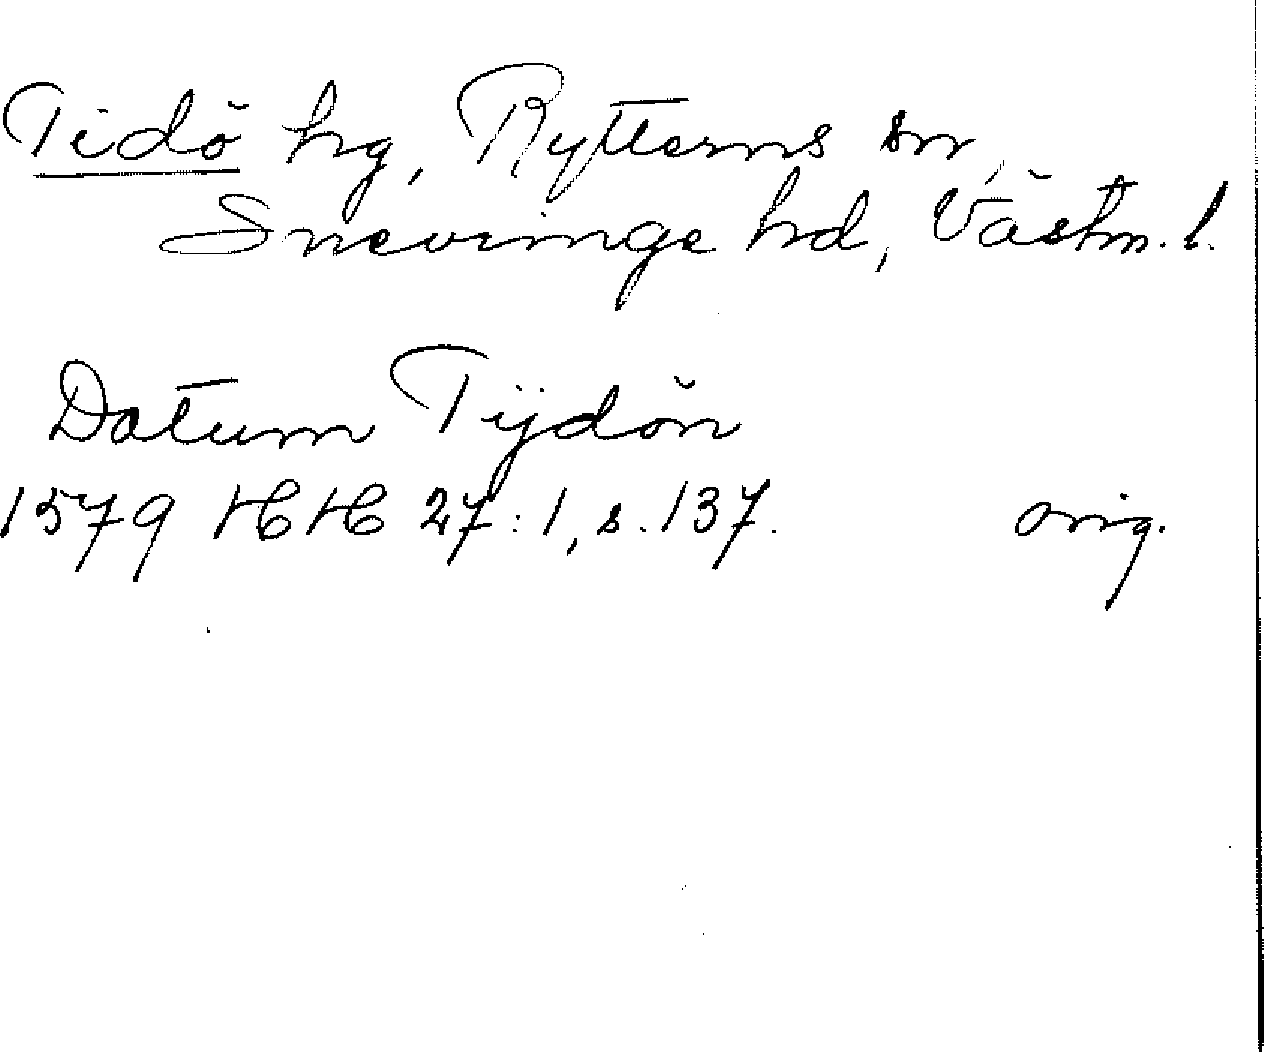 Tidö hg, Rytterns sn,
Snevringe hd, Västm. l.
Datum Tijdön
1579 HH 27:1, s. 137. orig.